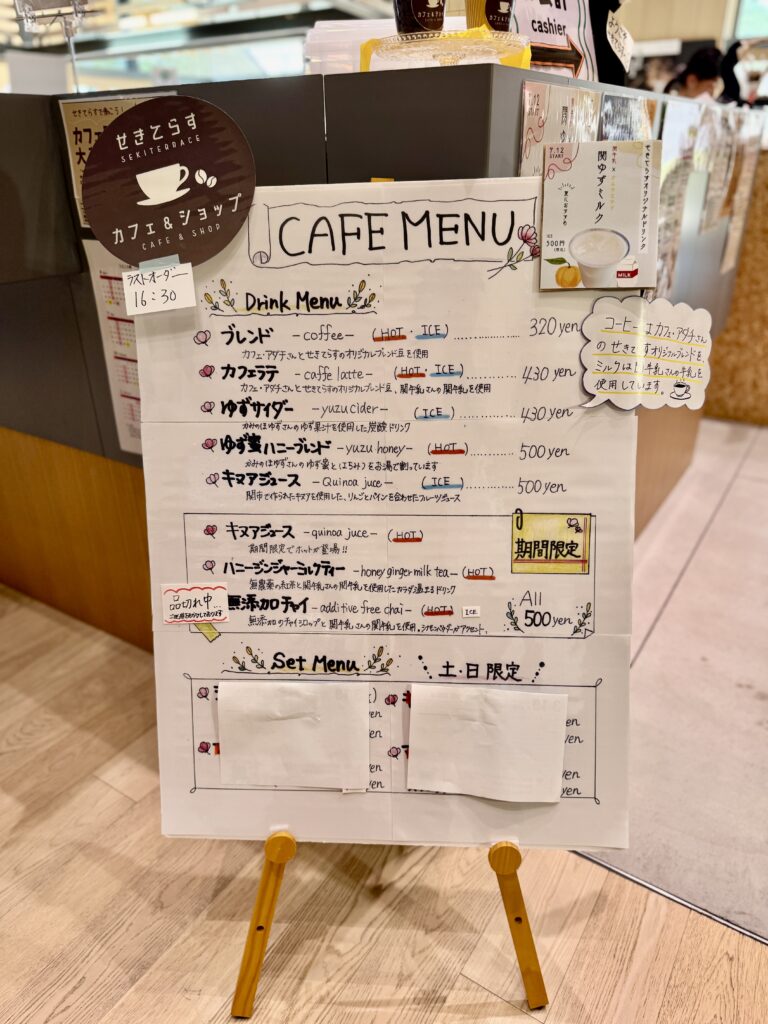 cashier
せきてらす
SEKITERRACE
カフェ&ショップ
CAFE & SHOP
ラストオーダー
16:30
CAFE MENU
7.12
START
せきてらすオリジナルドリンク
関ゆずミルク
500円
MILK
Drink Menu
ブレンド -coffee- (HOT・ICE) 320 yen
カフェ・アダチさんとせきてらすのオリジナルブレンド豆を使用
カフェラテ -caffe latte- (HOT・ICE) 430 yen
カフェ・アダチさんとせきてらすのオリジナルブレンド豆、関牛乳さんの関牛乳を使用
ゆずサイダー -yuzu cider- (ICE) 430 yen
かみのほゆずさんのゆず果汁を使用した炭酸ドリンク
ゆず蜜ハニーブレンド -yuzu honey- (HOT) 500 yen
かみのほゆずさんのゆず蜜とはちみつをお湯で割っています
キヌアジュース -Quinoa juce- (ICE) 500 yen
関市で作られたキヌアを使用した、りんごとパインを合わせたフルーツジュース
コーヒーはカフェ・アダチさん
のせきてらすオリジナルブレンドを、
ミルクは関牛乳さんの牛乳を
使用しています。
キヌアジュース -quinoa juce- (HOT)
期間限定でホットが登場!!
期間限定
ハニージンジャーミルクティー -honey ginger milk tea- (HOT)
無農薬の紅茶と関牛乳さんの関牛乳を使用したカラダ温まるドリンク
品切れ中…
無添加チャイ -additive free chai- (HOT) ICE
無添加のチャイシロップと関牛乳さんの関牛乳を使用。シナモンパウダーがアクセント。
All
500 yen
Set Menu
土・日限定
yen
yen
yen
yen
en
yen
yen
yen